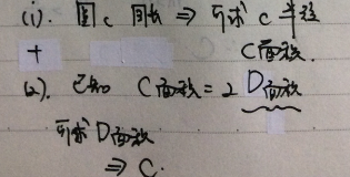 (1). 圆c 周长 ⇒ 可求 c 半径
+ C面积.
(2). 已知 C面积 = 2 D面积
可求D面积
⇒ C.